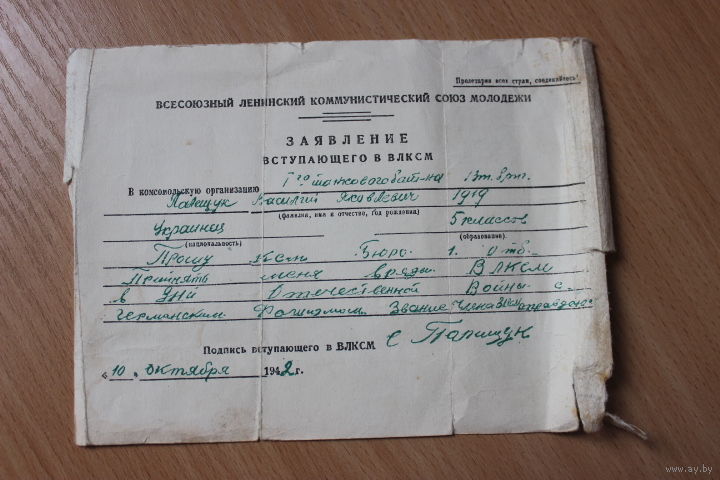 Пролетарии всех стран, соединяйтесь!
ВСЕСОЮЗНЫЙ ЛЕНИНСКИЙ КОММУНИСТИЧЕСКИЙ СОЮЗ МОЛОДЕЖИ
ЗАЯВЛЕНИЕ
ВСТУПАЮЩЕГО В ВЛКСМ
В комсомольскую организацию 1го танкового бат-на
Василий Яковлевич 1919
(фамилия, имя и отчество, год рождения)
Украинец 5 классов
(национальность) (образование)
Прошу Бюро 1. отб.
Прийнять меня вряды ВЛКСМ
в дни Отечественной Войны с
германским Фашизмом Звание Члена
Подпись вступающего в ВЛКСМ
„10„ октября 1942 г.
www.ay.by